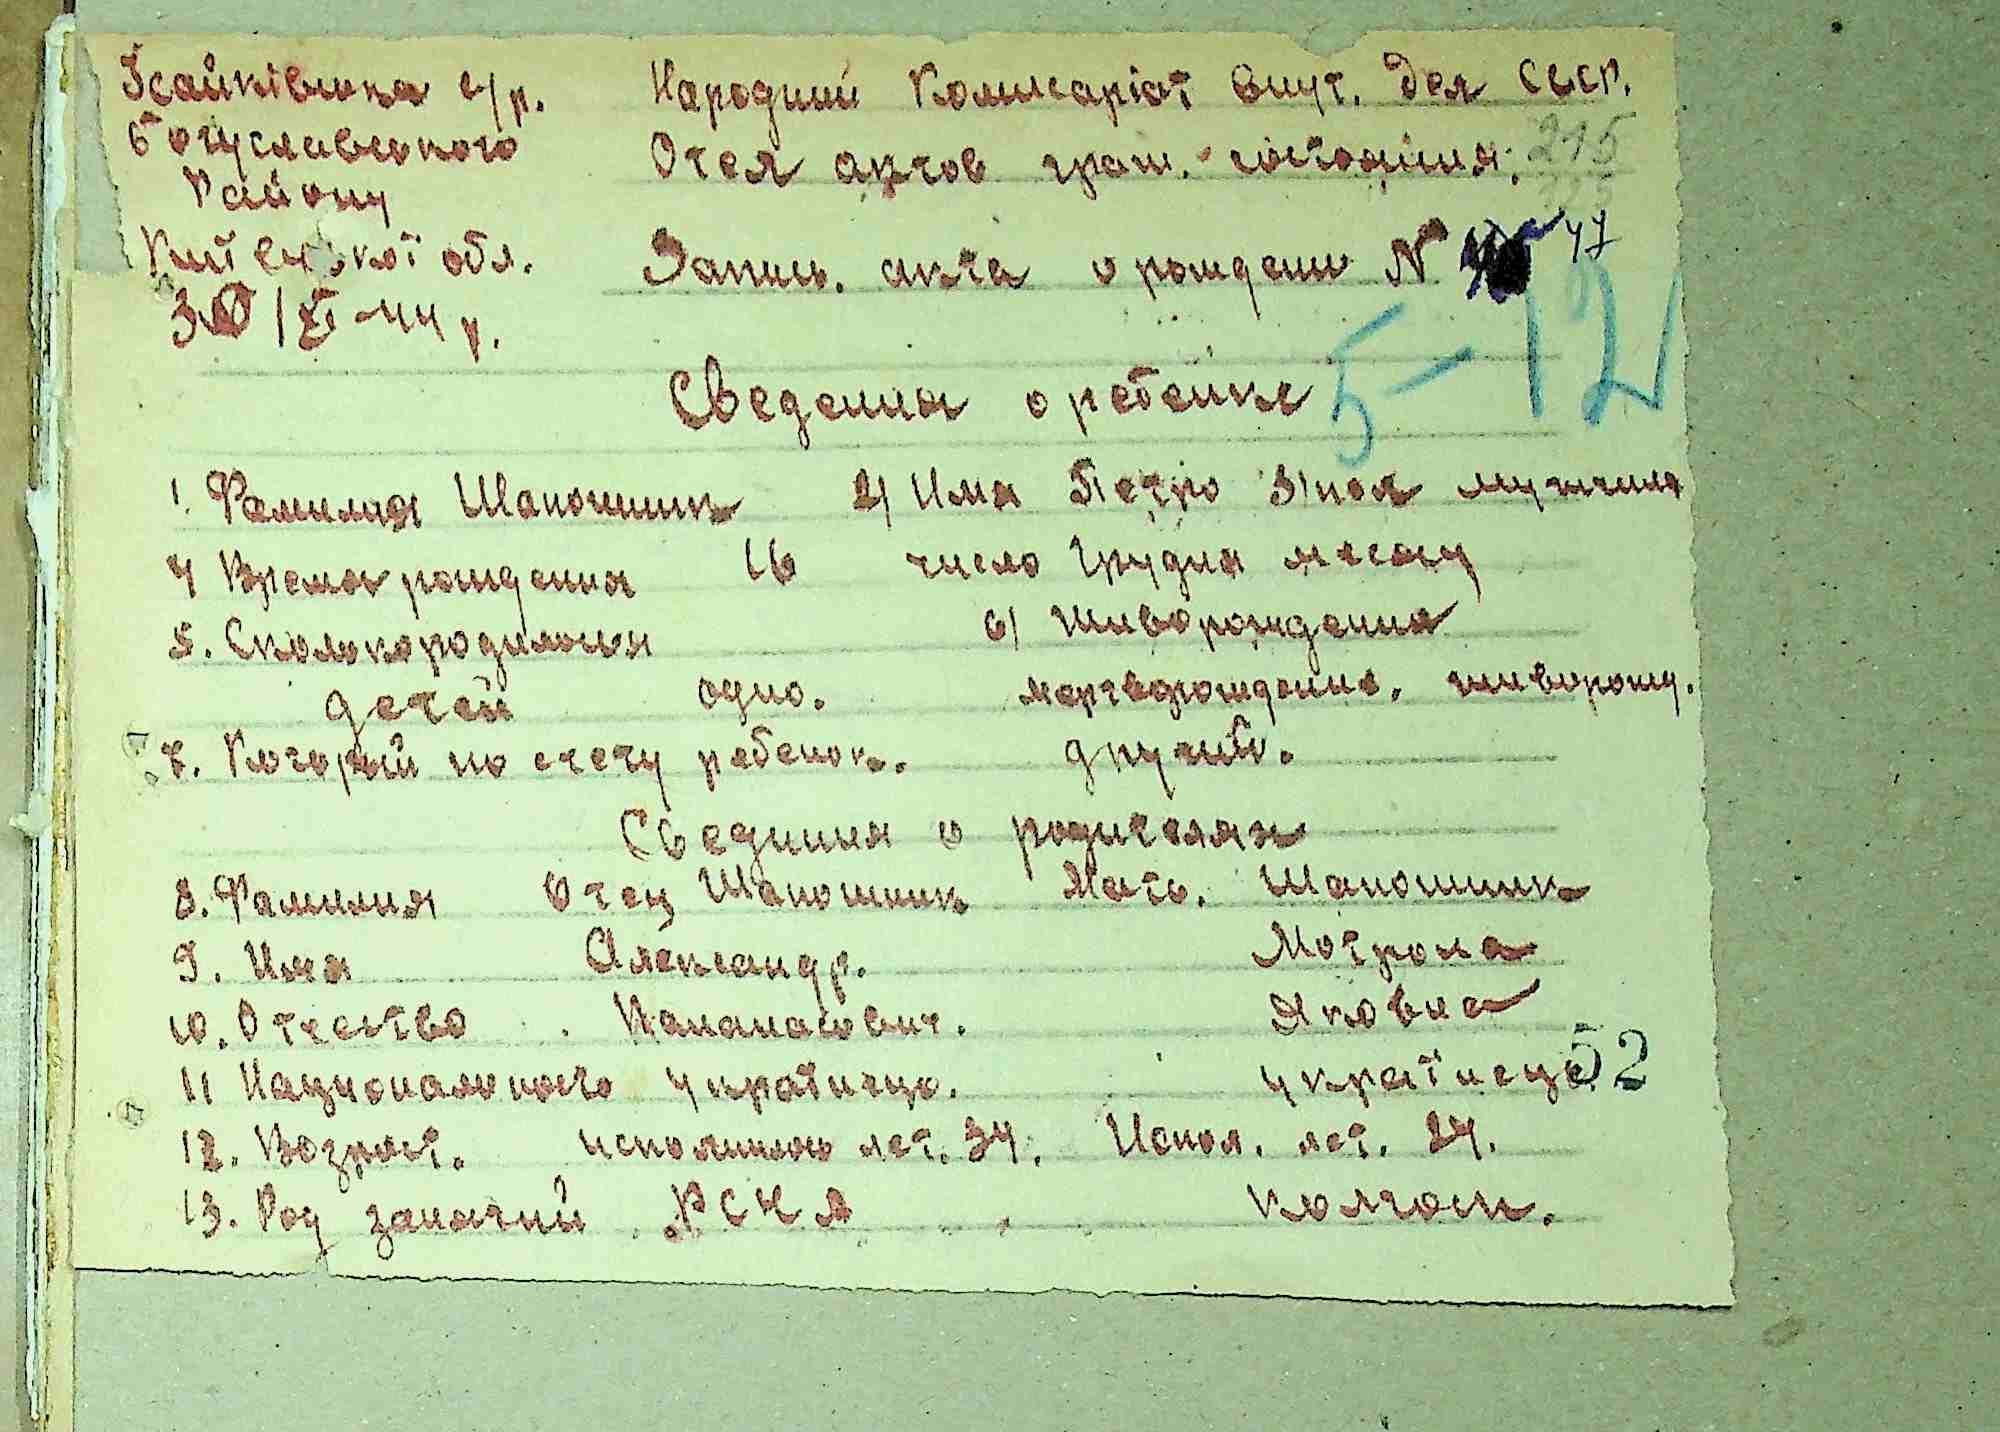 Ісайківська с/р.
Богуславського
Району
Київської обл.
30/XI-44 р.
Народний Комисаріат Внут. Дел СССР.
Отел актов граж. состояния.
215
Запись. акта о рождени N 47
5-12
Сведения о ребенке
1. Фамилия Шапошник 2) Имя Петро 3) пол мужчина
4 Время рождения 16 число Грудня месяц
5. Сколькородилося 6) Живорождения
детей одно. мертворождение. живорожд.
7. Которий по счету ребенок. другий.
Сведения о родителях
8. Фамилия Отец Шапошник Мать. Шапошник
9. Имя Александр. Мотрона
10. Отчество Пананасович. Яковна
11 Национальность українець. українець
52
12. Возраст. исполнилось лет. 34. Испол. лет. 24.
13. Род занятий РСКА колгосп.